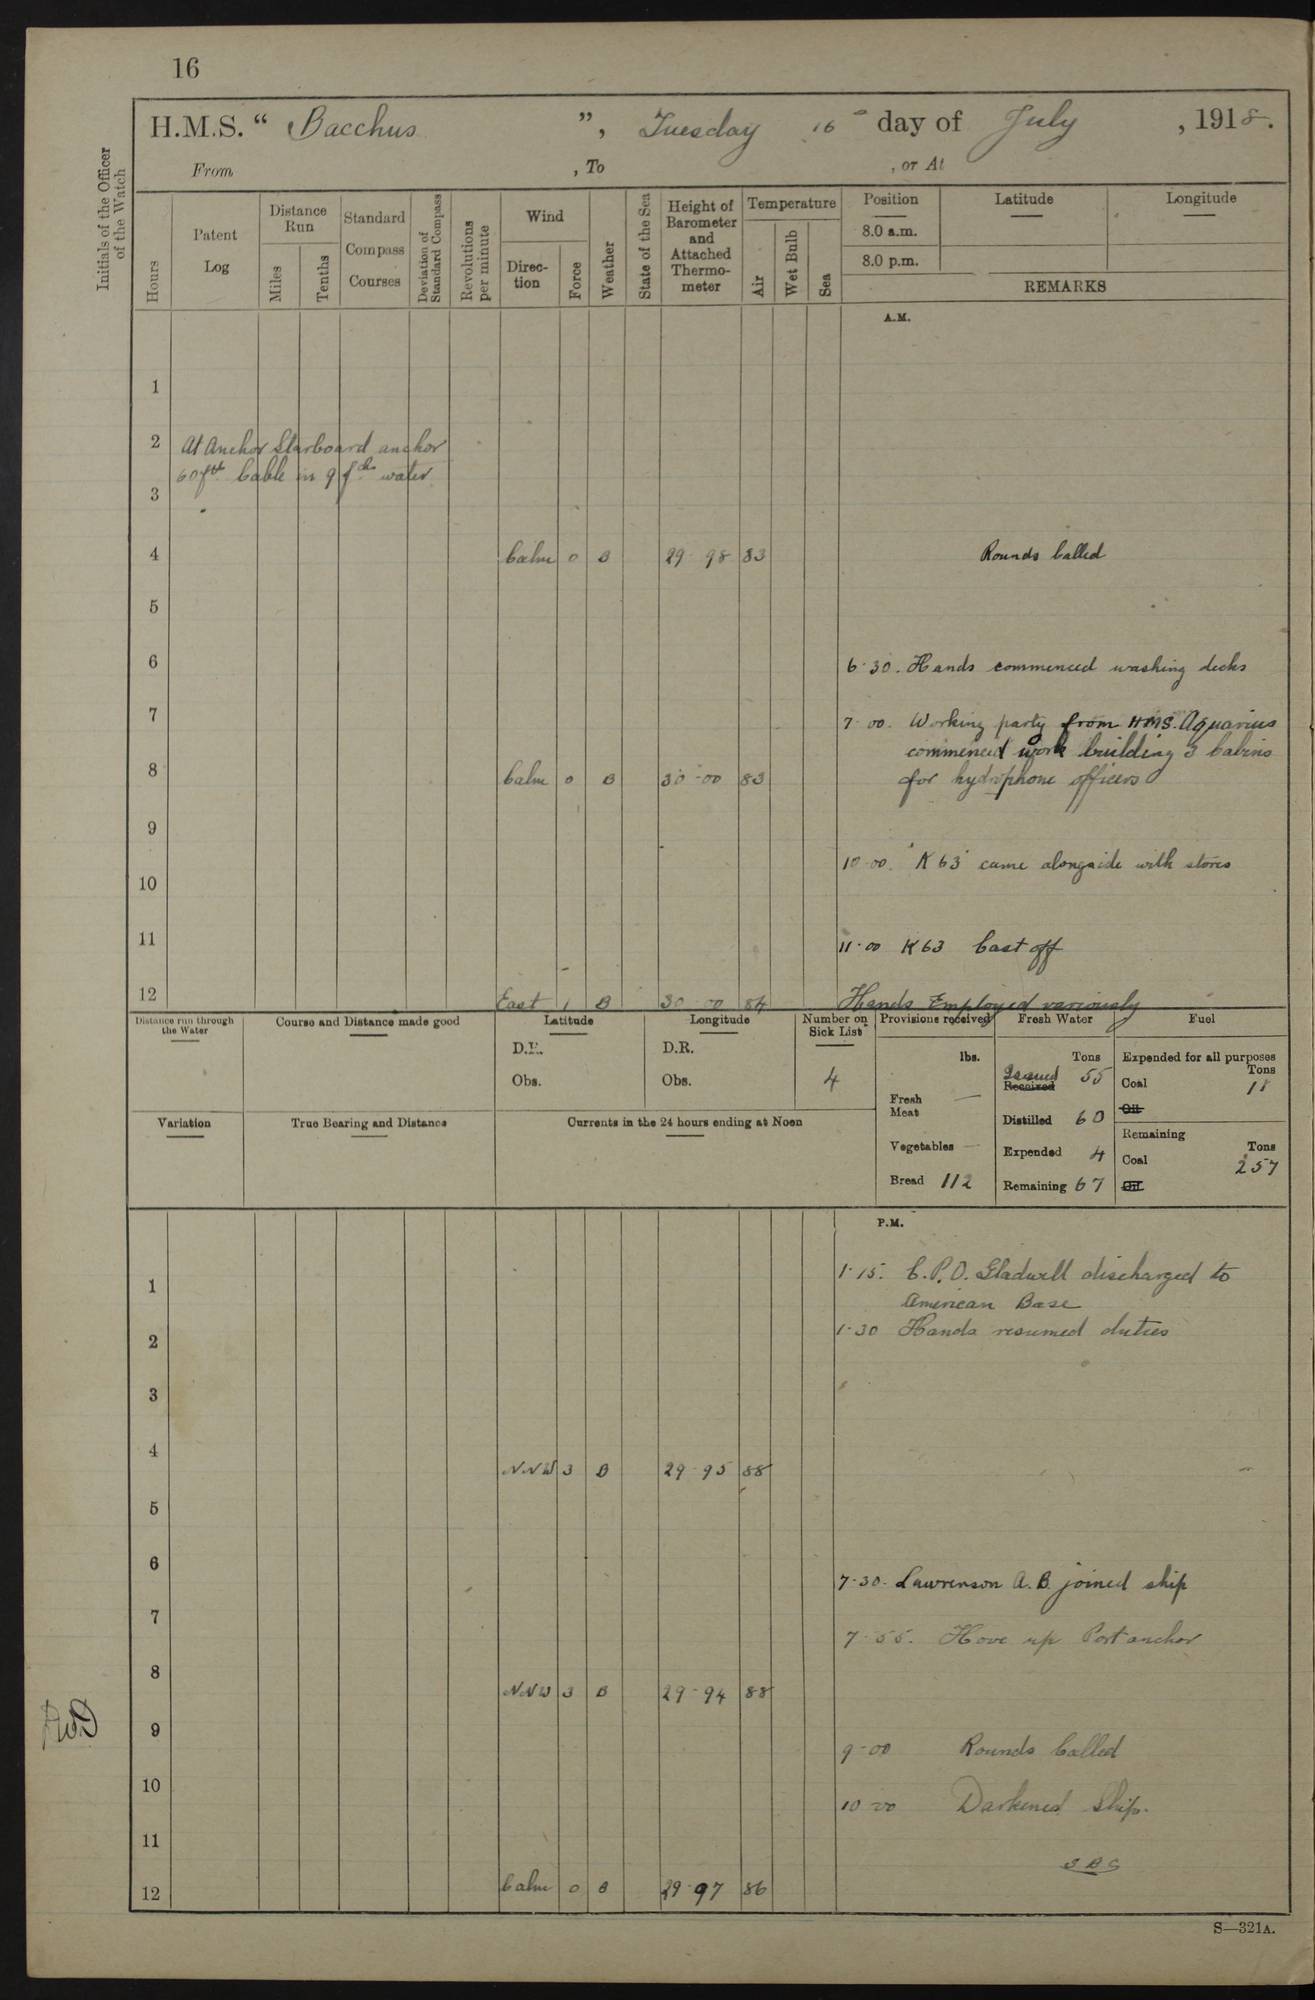 16
H.M.S. “ Bacchus ”, Tuesday 16th day of July, 1918.
From , To , or At
Initials of the Officer of the Watch
Hours
Patent Log
Distance Run
Miles
Tenths
Standard Compass Courses
Deviation of Standard Compass
Revolutions per minute
Wind
Direction
Force
Weather
State of the Sea
Height of Barometer and Attached Thermometer
Temperature
Air
Wet Bulb
Sea
Position
8.0 a.m.
8.0 p.m.
Latitude
Longitude
REMARKS
A.M.
1
2 At Anchor Starboard anchor
60 fth Cable in 9 fths water
3
4 Calm 0 B 29.98 83 Rounds Called
5
6 6.30. Hands commenced washing decks
7 7.00. Working party from HMS. Aquarius
commenced work building 3 Cabins
8 Calm 0 B 30.00 83 for hydrophone officers
9
10.00. "K63" came alongside with stores
10
11 11.00 K63 Cast off
12 East 1 B 30 00 84 Hands Employed variously
Distance run through the Water
Course and Distance made good
Latitude
D.R.
Obs.
Longitude
D.R.
Obs.
Number on Sick List
4
Provisions received
lbs.
Fresh Meat —
Vegetables —
Bread 112
Fresh Water
Tons
Issued
Received 55
Distilled 60
Expended 4
Remaining 67
Fuel
Expended for all purposes
Tons
Coal 18
Oil
Remaining
Tons
Coal 257
Oil
Variation
True Bearing and Distance
Currents in the 24 hours ending at Noon
P.M.
1.15. C.P.O. Gladwell discharged to
1
American Base
1.30 Hands resumed duties
2
3
4 NNW 3 B 29.95 88
5
6
7.30. Lawrenson A.B. joined ship
7
7.55. Hove up Port anchor
8 NNW 3 B 29.94 88
9
9.00 Rounds Called
10
10.00 Darkened Ship.
11
12 Calm 0 B 29.97 86
S—321A.